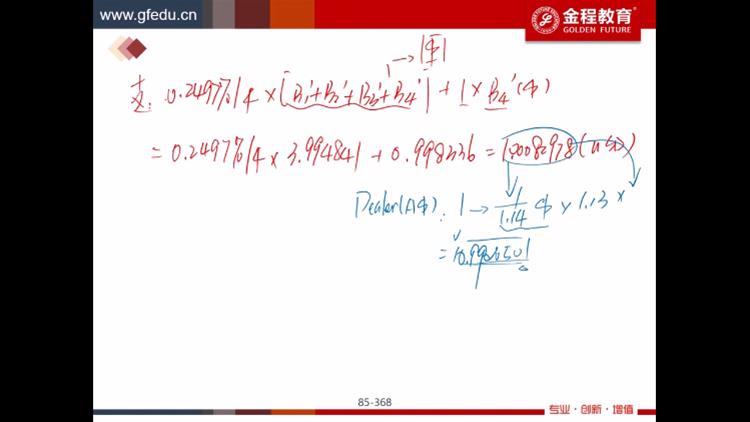 www.gfedu.cn
金程教育
GOLDEN FUTURE
支: 0.2497%/4 × (B₁'+B₂'+B₃'+B₄') + 1 × B₄' ($)
= 0.2497%/4 × 3.994841 + 0.998336 =
Dealer(A$): 1 → 1/1.14 $ × 1.13 ×
=
85-368
专业·创新·增值